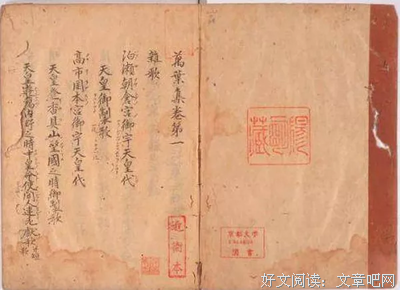 京都大學
圖書
萬葉集卷第一
雜歌
泊瀬朝倉宮御宇天皇代
天皇御製歌
高市岡本宮御宇天皇代
天皇登香具山望國之時御製歌
天皇遊獦内野之時中皇命使間人連老獻歌
近衛本
好文阅读:文章吧网